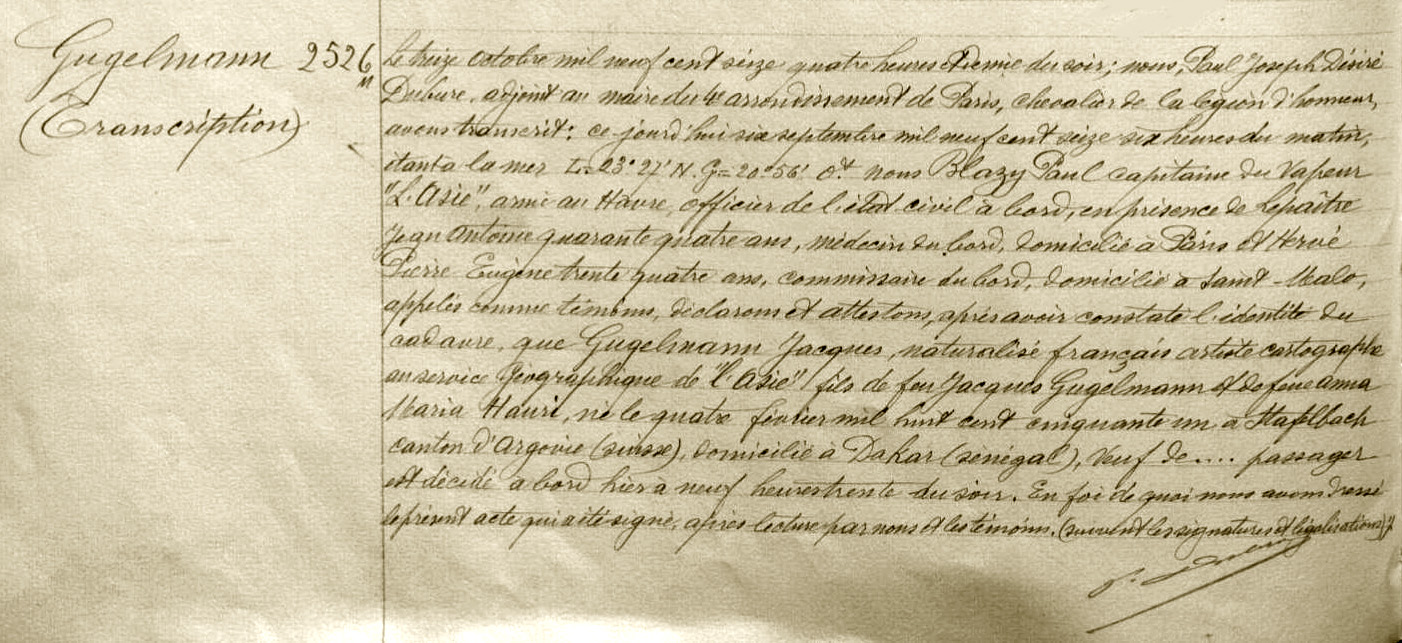 Gugelmann 2526
(Transcription)
Le treize octobre mil neuf cent seize quatre heures et demie du soir; nous, Paul Joseph Désiré
Dubure, adjoint au maire du 4e arrondissement de Paris, chevalier de la légion d'honneur,
avons transcrit: ce-jourd'hui six septembre mil neuf cent seize six heures du matin,
étant à la mer L=23°27' N. G=20°56' Ot nous Blazy Paul capitaine du Vapeur
"L'Asie", armé au Hâvre, officier de l'état civil à bord, en présence de Lepaître
Jean Antoine quarante quatre ans, médecin du bord, domicilié à Paris et Hervé
Pierre Eugène trente quatre ans, commissaire du bord, domicilié à Saint-Malo,
appelés comme témoins, déclarons et attestons, après avoir constaté l'identité du
cadavre, que Gugelmann Jacques, naturalisé français artiste cartographe
au service géographique de "l'Asie" fils de feu Jacques Gugelmann et de feue anna
Maria Hauri, né le quatre février mil huit cent cinquante un à Stafelbach
canton d'Argovie (suisse), domicilié à Dakar (sénégal), Veuf de.... passager
est décédé à bord hier à neuf heures trente du soir. En foi de quoi nous avons dressé
le présent acte qui a été signé, après lecture par nous et les témoins. (suivent les signatures et légalisations)